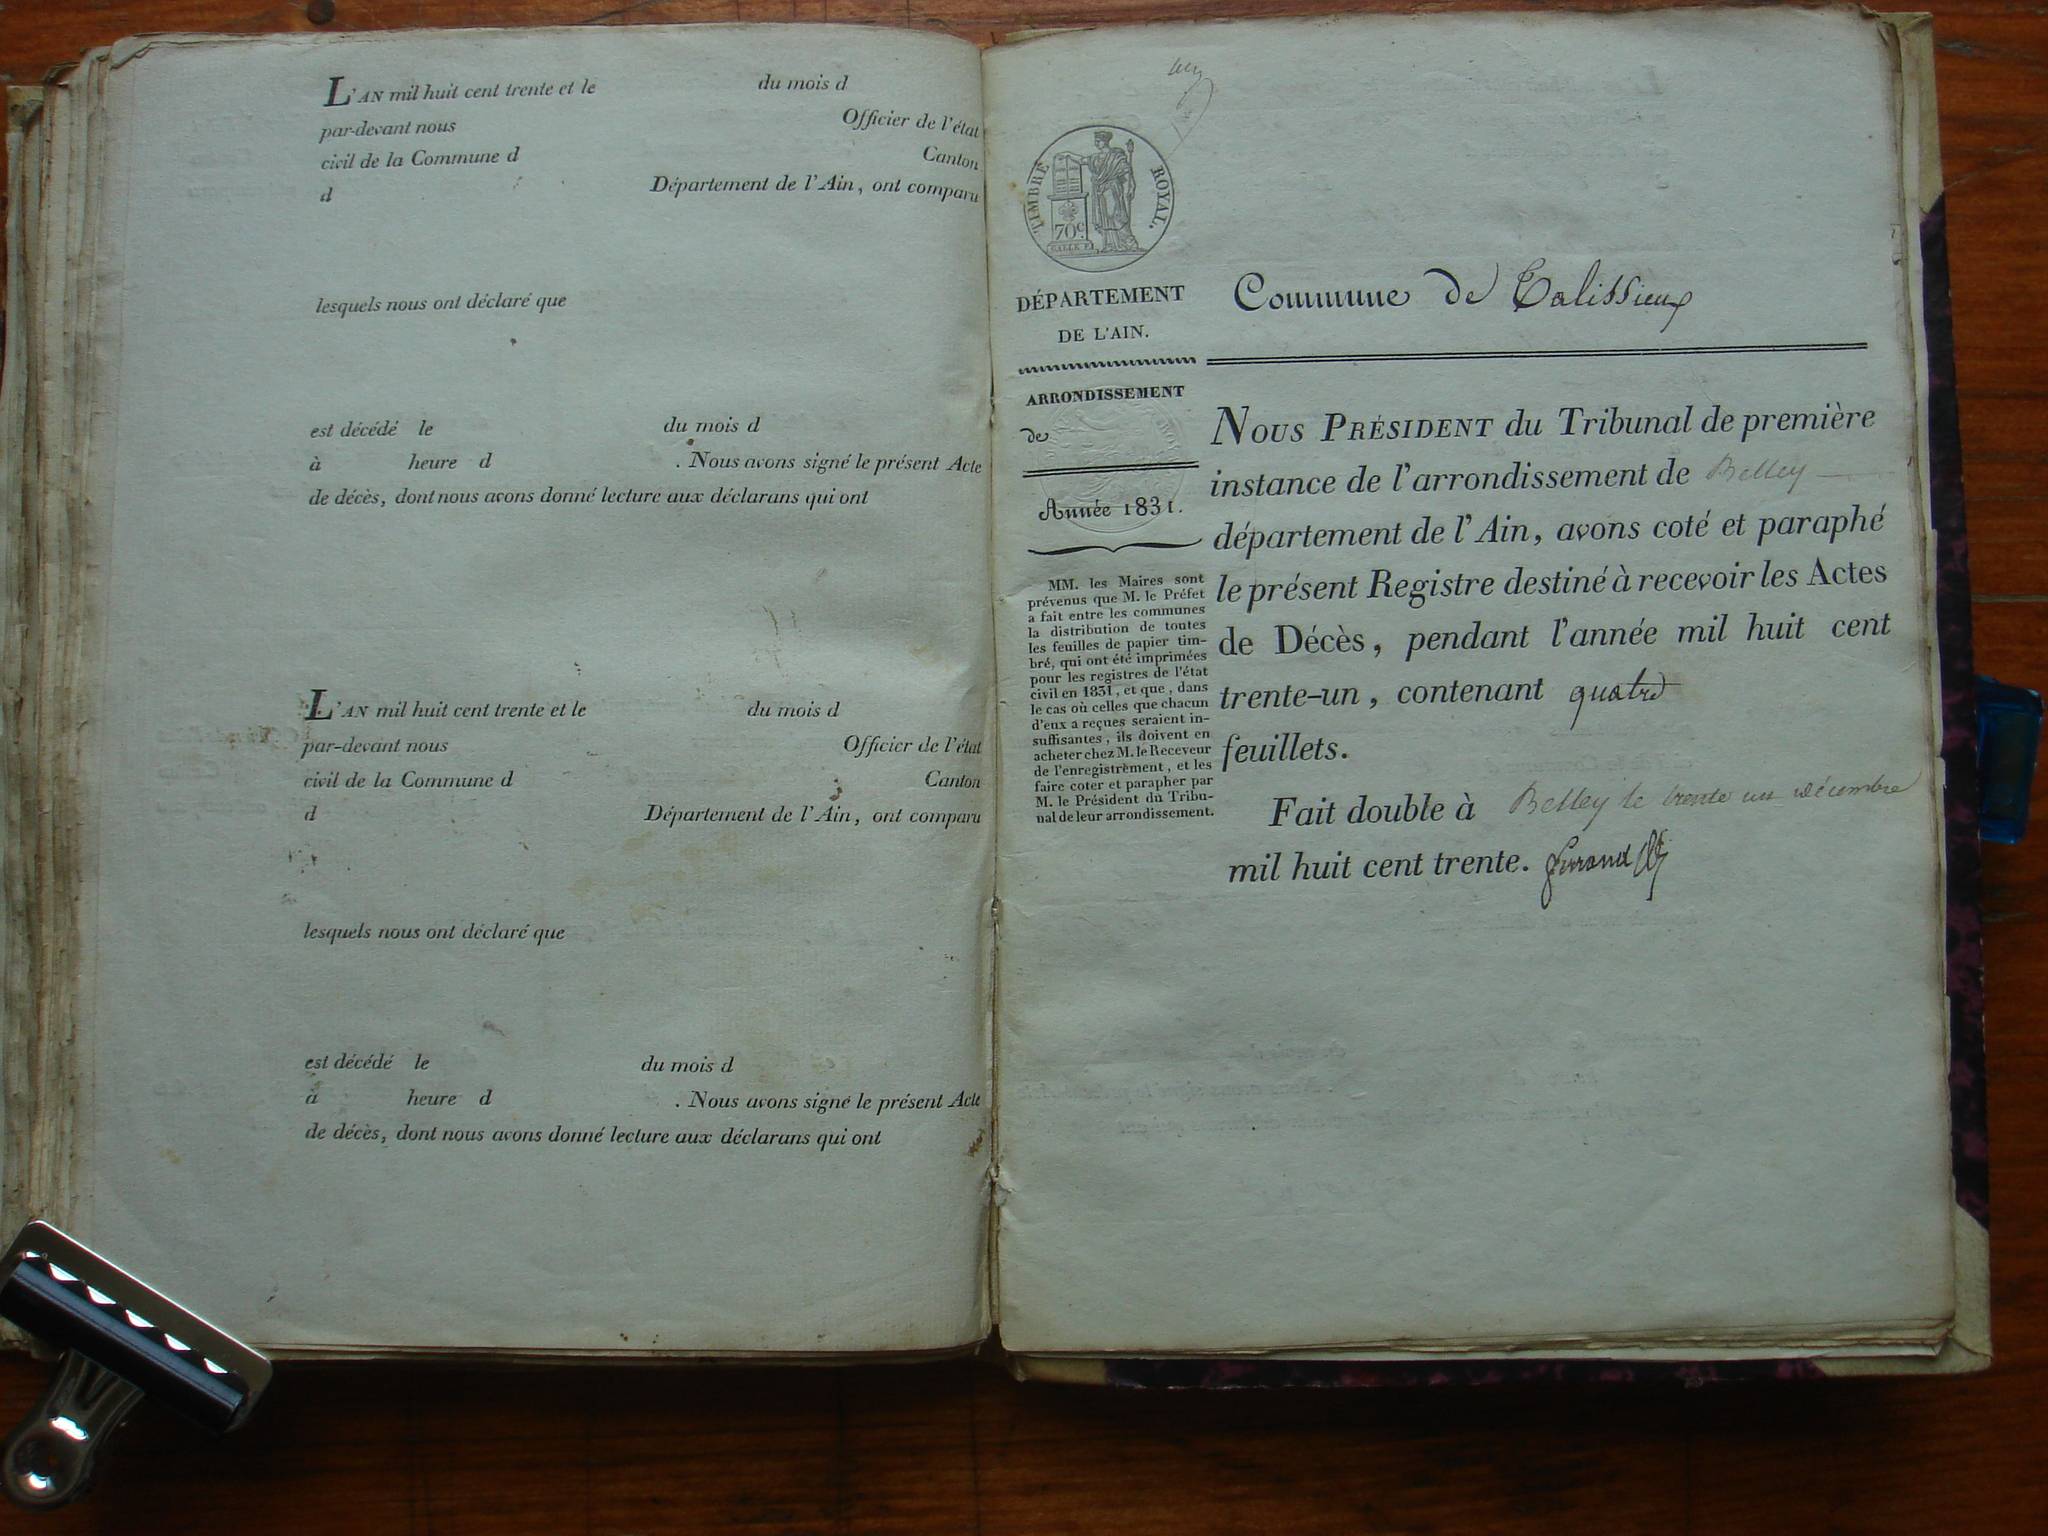 L'AN mil huit cent trente et le du mois d
par-devant nous Officier de l'état
civil de la Commune d Canton
d Département de l'Ain, ont comparu
lesquels nous ont déclaré que
est décédé le du mois d
à heure d . Nous avons signé le présent Acte
de décès, dont nous avons donné lecture aux déclarans qui ont
L'AN mil huit cent trente et le du mois d
par-devant nous Officier de l'état
civil de la Commune d Canton
d Département de l'Ain, ont comparu
lesquels nous ont déclaré que
est décédé le du mois d
à heure d . Nous avons signé le présent Acte
de décès, dont nous avons donné lecture aux déclarans qui ont
TIMBRE ROYAL.
70c.
DÉPARTEMENT
DE L'AIN.
ARRONDISSEMENT
de
Année 1831.
MM. les Maires sont
prévenus que M. le Préfet
a fait entre les communes
la distribution de toutes
les feuilles de papier tim-
bré, qui ont été imprimées
pour les registres de l'état
civil en 1831, et que, dans
le cas où celles que chacun
d'eux a reçues seraient in-
suffisantes, ils doivent en
acheter chez M. le Receveur
de l'enregistrement, et les
faire coter et parapher par
M. le Président du Tribu-
nal de leur arrondissement.
Commune de Talissieux
NOUS PRÉSIDENT du Tribunal de première
instance de l'arrondissement de Belley
département de l'Ain, avons coté et paraphé
le présent Registre destiné à recevoir les Actes
de Décès, pendant l'année mil huit cent
trente-un, contenant quatre
feuillets.
Fait double à Belley le trente un décembre
mil huit cent trente.